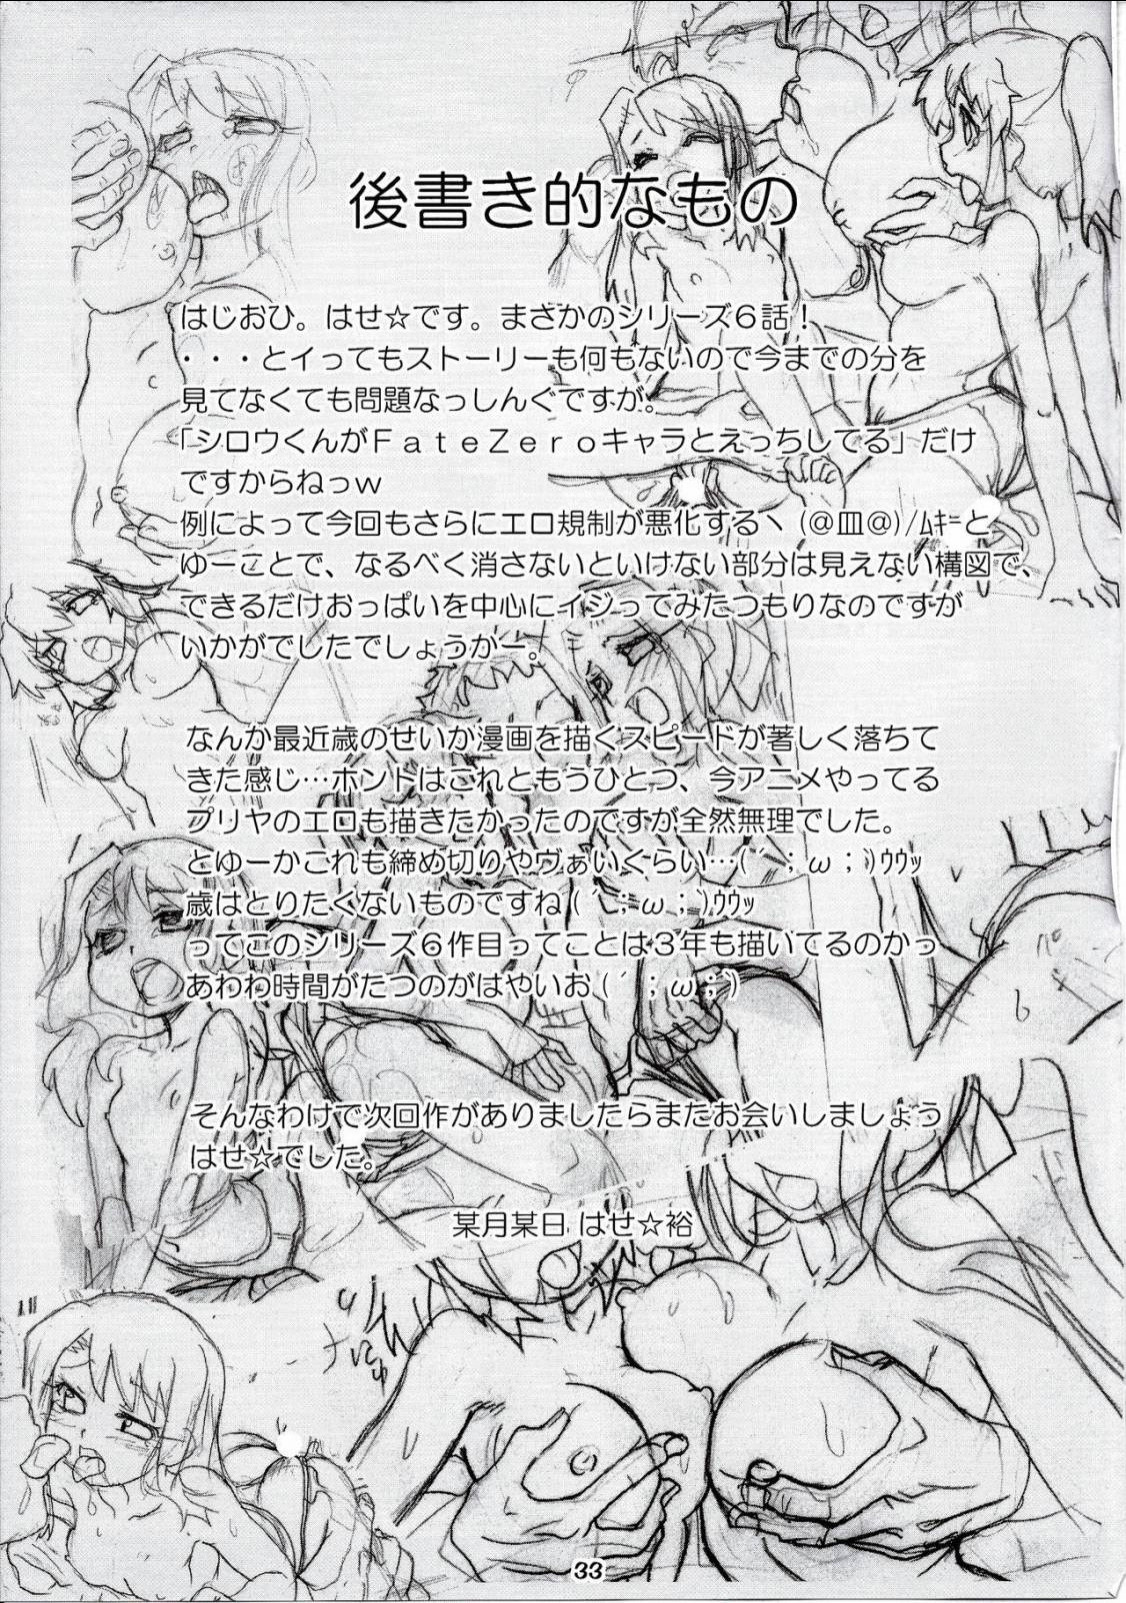 後書き的なもの
はじおひ。はせ☆です。まさかのシリーズ６話！
・・・とイってもストーリーも何もないので今までの分を
見てなくても問題なっしんぐですが。
「シロウくんがＦａｔｅＺｅｒｏキャラとえっちしてる」だけ
ですからねっｗ
例によって今回もさらにエロ規制が悪化するヽ(＠皿＠)/ﾑｷｰと
ゆーことで、なるべく消さないといけない部分は見えない構図で、
できるだけおっぱいを中心にイジってみたつもりなのですが
いかがでしたでしょうかー。
なんか最近歳のせいか漫画を描くスピードが著しく落ちて
きた感じ…ホントはこれともうひとつ、今アニメやってる
プリヤのエロも描きたかったのですが全然無理でした。
とゆーかこれも締め切りやヴぁいくらい…(´；ω；`)ｳｳｯ
歳はとりたくないものですね(´；ω；`)ｳｳｯ
ってこのシリーズ６作目ってことは３年も描いてるのかっ
あわわ時間がたつのがはやいお(´；ω；`)
そんなわけで次回作がありましたらまたお会いしましょう
はせ☆でした。
某月某日 はせ☆裕
33